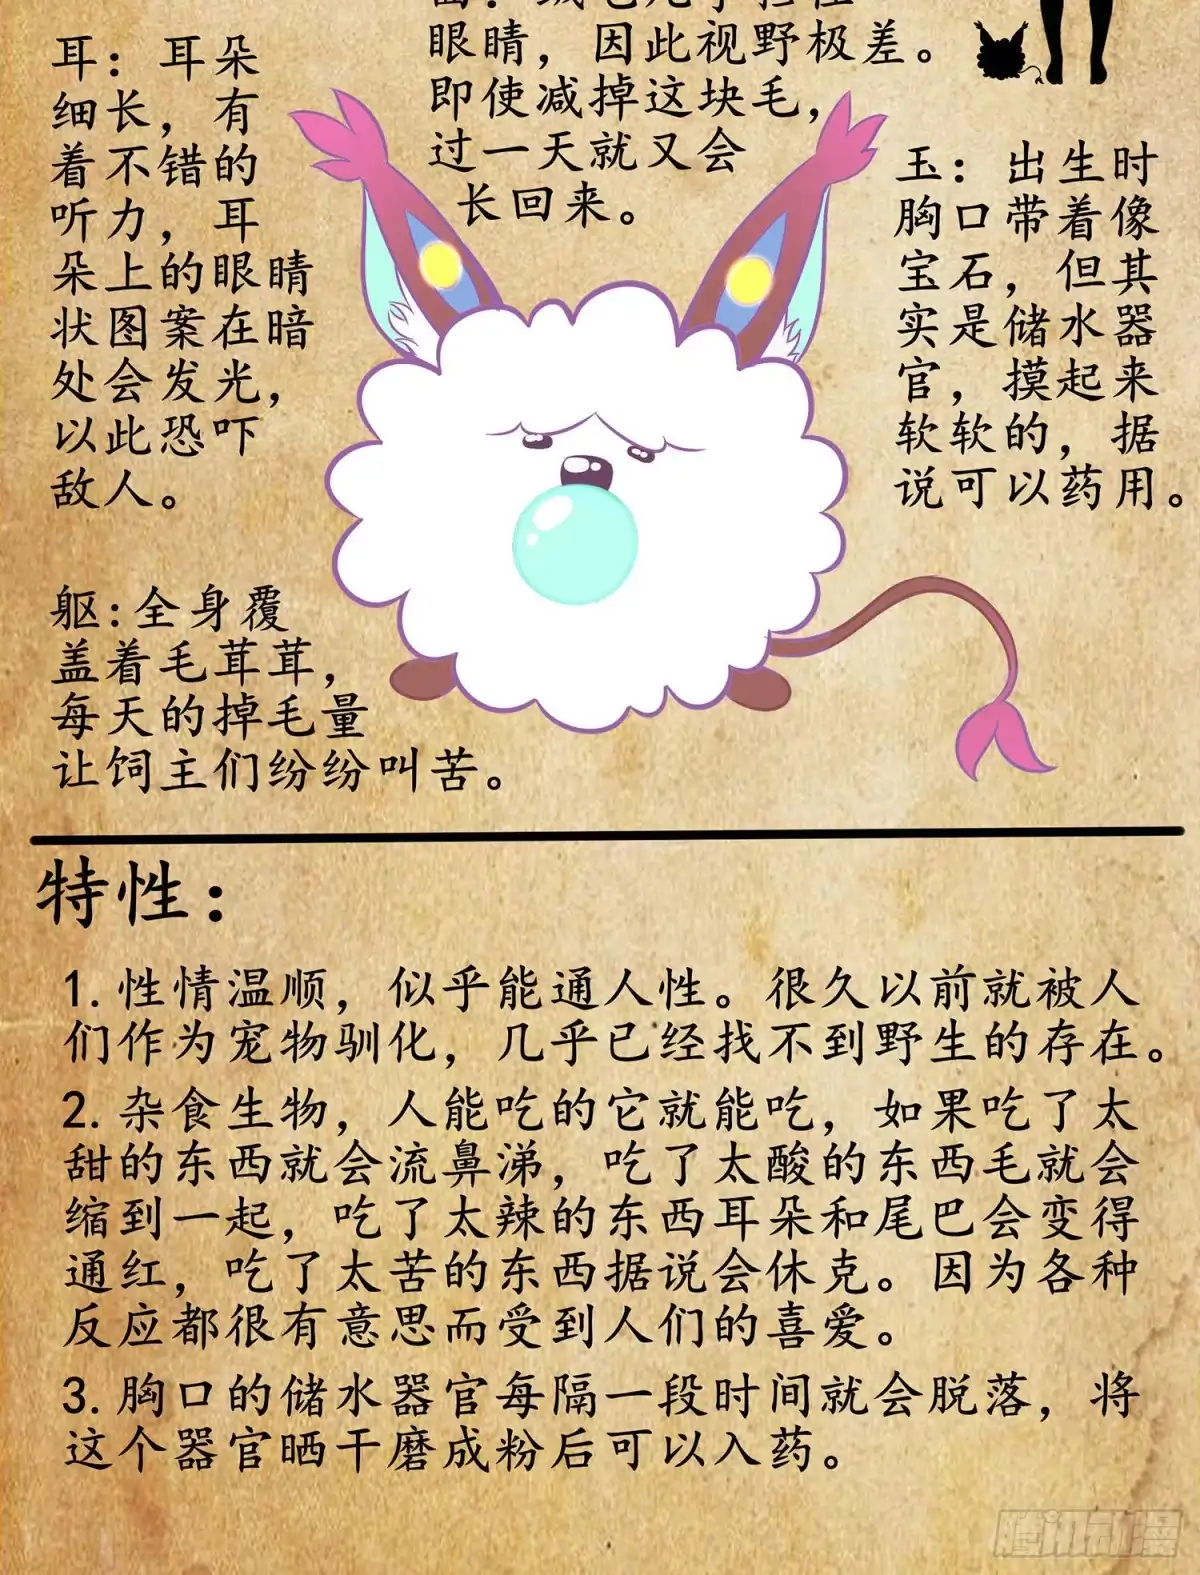 眼睛，因此视野极差。
即使减掉这块毛，
过一天就又会
长回来。
耳：耳朵
细长，有
着不错的
听力，耳
朵上的眼睛
状图案在暗
处会发光，
以此恐吓
敌人。
玉：出生时
胸口带着像
宝石，但其
实是储水器
官，摸起来
软软的，据
说可以药用。
躯:全身覆
盖着毛茸茸，
每天的掉毛量
让饲主们纷纷叫苦。
特性：
1. 性情温顺，似乎能通人性。很久以前就被人
们作为宠物驯化，几乎已经找不到野生的存在。
2. 杂食生物，人能吃的它就能吃，如果吃了太
甜的东西就会流鼻涕，吃了太酸的东西毛就会
缩到一起，吃了太辣的东西耳朵和尾巴会变得
通红，吃了太苦的东西据说会休克。因为各种
反应都很有意思而受到人们的喜爱。
3. 胸口的储水器官每隔一段时间就会脱落，将
这个器官晒干磨成粉后可以入药。
腾讯动漫